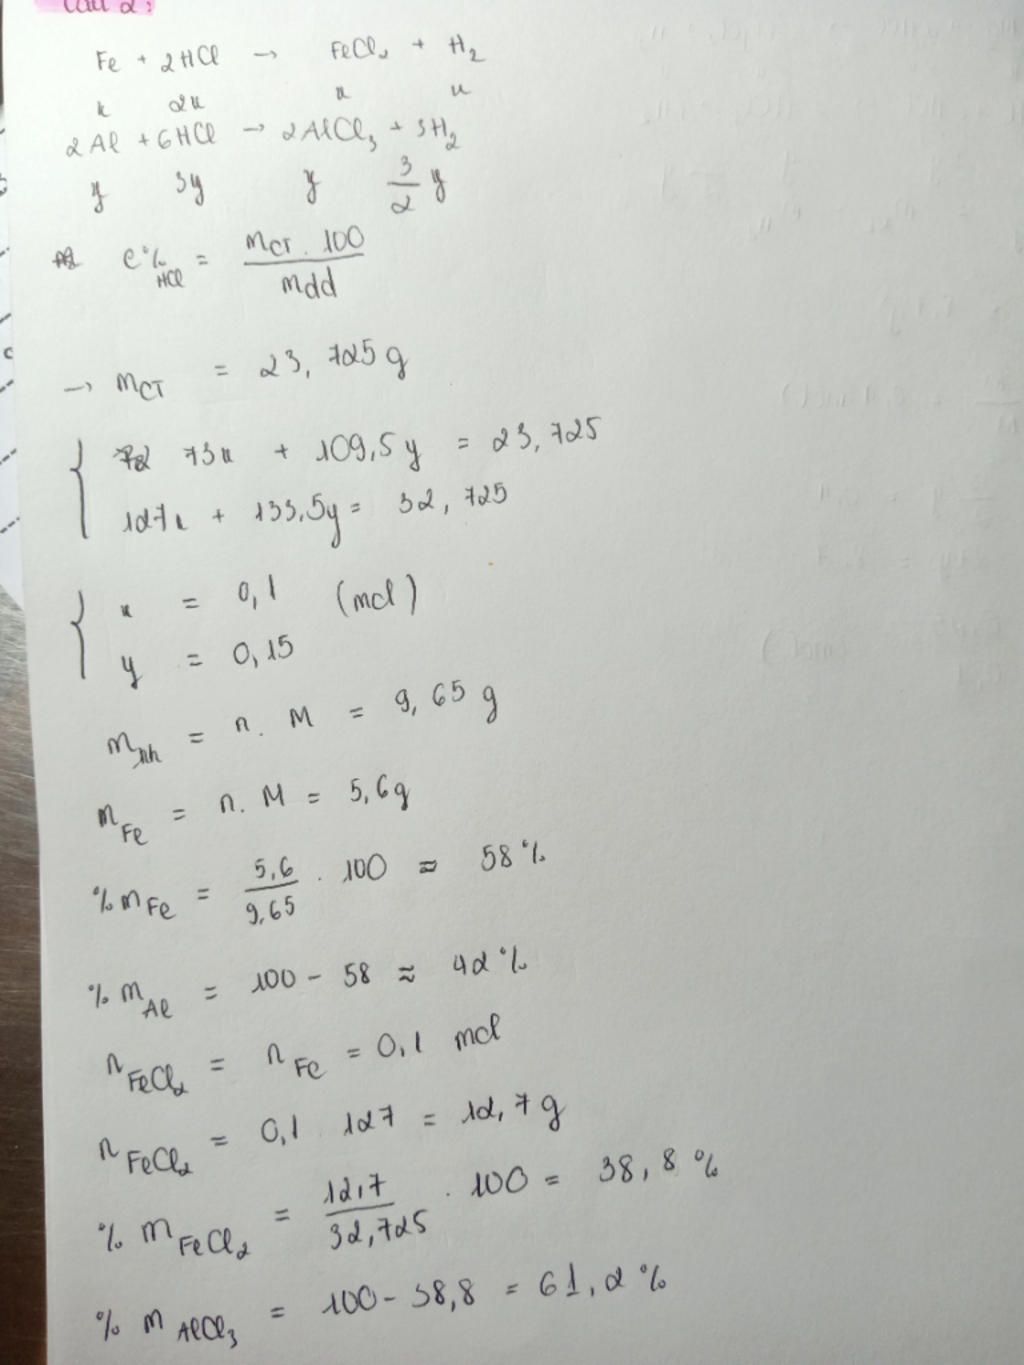 Câu 2:
Fe + 2HCl → FeCl₂ + H₂
x 2x x x
2Al + 6HCl → 2AlCl₃ + 3H₂
y 3y y 3/2 y
C%HCl = mCT . 100 / mdd
→ mCT = 23,725 g
73x + 109,5y = 23,725
127x + 133,5y = 32,725
x = 0,1 (mol)
y = 0,15
mhh = n. M = 9,65 g
mFe = n. M = 5,6g
%mFe = 5,6 / 9,65 . 100 ≈ 58 %
% mAl = 100 - 58 ≈ 42 %
nFeCl₂ = nFe = 0,1 mol
nFeCl₂ = 0,1 127 = 12,7 g
% mFeCl₂ = 12,7 / 32,725 . 100 = 38,8 %
% mAlCl₃ = 100 - 38,8 = 61,2 %